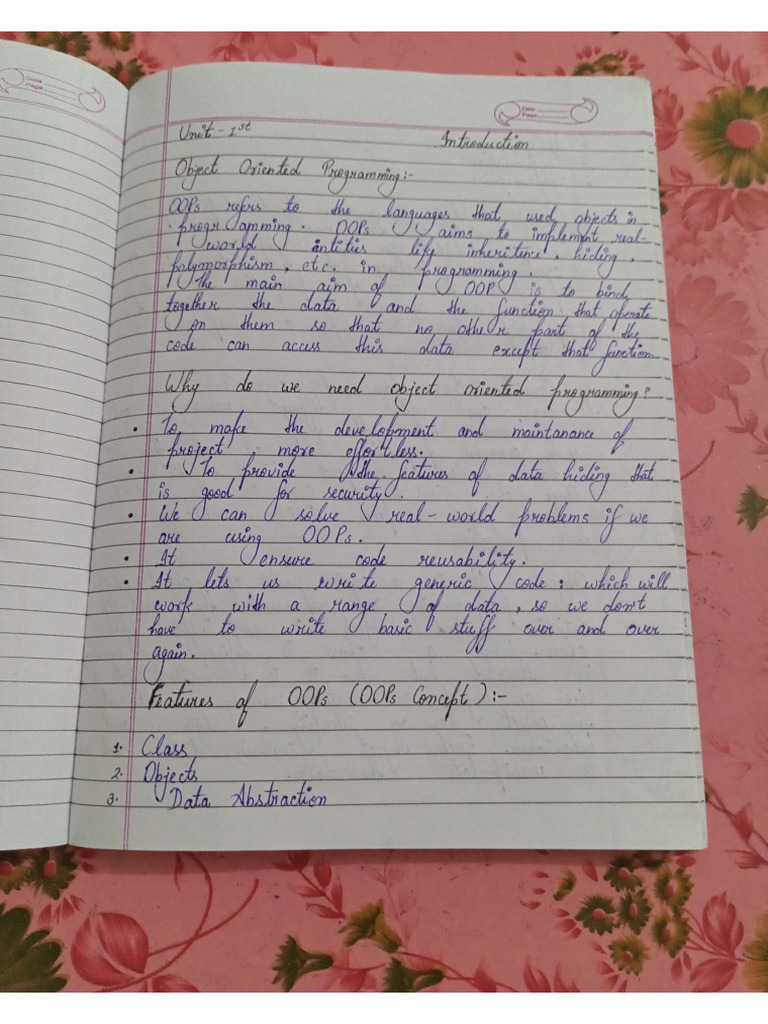 Date
Page
Date
Page
Unit - 1st Introduction
Object Oriented Programming:-
OOPs refrs to the languages that used objects in
progr amming. OOPs aims to implement real-
world antities life inheritence, hiding,
polymorphism, etc. in programming.
The main aim of OOP is to bind
together the data and the function that operate
on them so that no other part of the
code can access this data except that function.
Why do we need object oriented programming?
• To make the development and maintanance of
project more effortless.
• To provide the features of data hiding that
is good for security.
• We can solve real-world problems if we
are using OOPs.
• It ensure code reusability.
• It lets us write generic code: which will
work with a range of data, so we don't
have to write basic stuff over and over
again.
Features of OOPs (OOPs Concept):-
1. Class
2. Objects
3. Data Abstraction